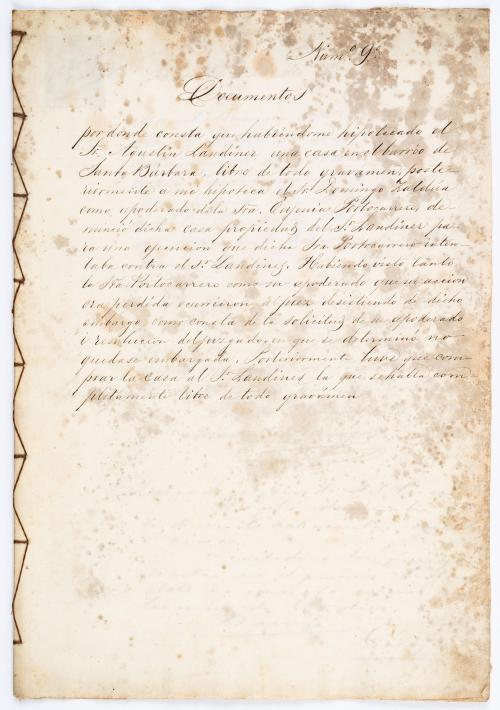 Num.o 9.
Documentos
por donde consta que habiéndome hipotecado el
Sr. Agustin Landines una casa en el barrio de
Santa Bárbara, libre de todo gravamen, poste
riormente a mi hipoteca el Sr. Domingo Zaldua
como apoderado de la Sra. Eugenia Portocarrero, de-
nunció dicha casa propiedad del Sr. Landines pa
ra una ejecucion que dicha Sra. Portocarrero inten
taba contra el Sr. Landines. Habiendo visto tanto
la Sra. Portocarrero como su apoderado que su accion
era perdida ocurrieron al juez desistiendo de dicho
embargo, como consta de la solicitud de su apoderado
i resolucion del juzgado, en que se determinó no
quedase embargada. Posteriormente tuve que com
prar la casa al Sr. Landines la que se halla com
pletamente libre de todo gravamen